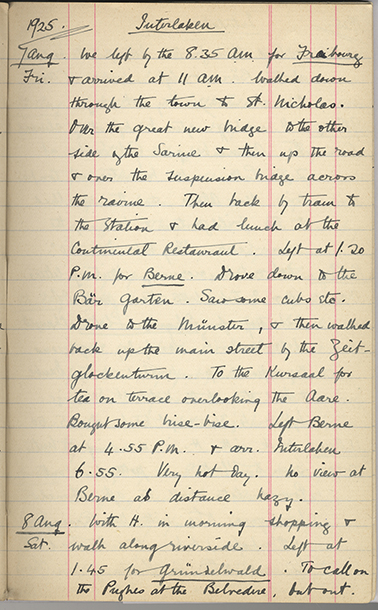 1925. Interlaken
7 Aug. We left by the 8.35 AM for Freibourg
Fri. & arrived at 11 AM. Walked down
through the town to St. Nicholas.
Over the great new bridge to the other
side of the Sarine & then up the road
& over the suspension bridge across
the ravine. Then back by tram to
the Station & had lunch at the
Continental Restaurant. Left at 1.20
P.M. for Berne. Drove down to the
Bär Garten. Saw some cubs etc.
Drove to the Münster, & then walked
back up the main street by the Zeit-
glockenturm. To the Kursaal for
tea on terrace overlooking the Aare.
Bought some brise-bise. Left Berne
at 4.55 P.M. & arr. Interlaken
6.55. Very hot day. No view at
Berne as distance hazy.
8 Aug. With H. in morning shopping &
Sat. walk along riverside. Left at
1.45 for Grünselwald. To call on
the Pughes at the Belvedere, but out.